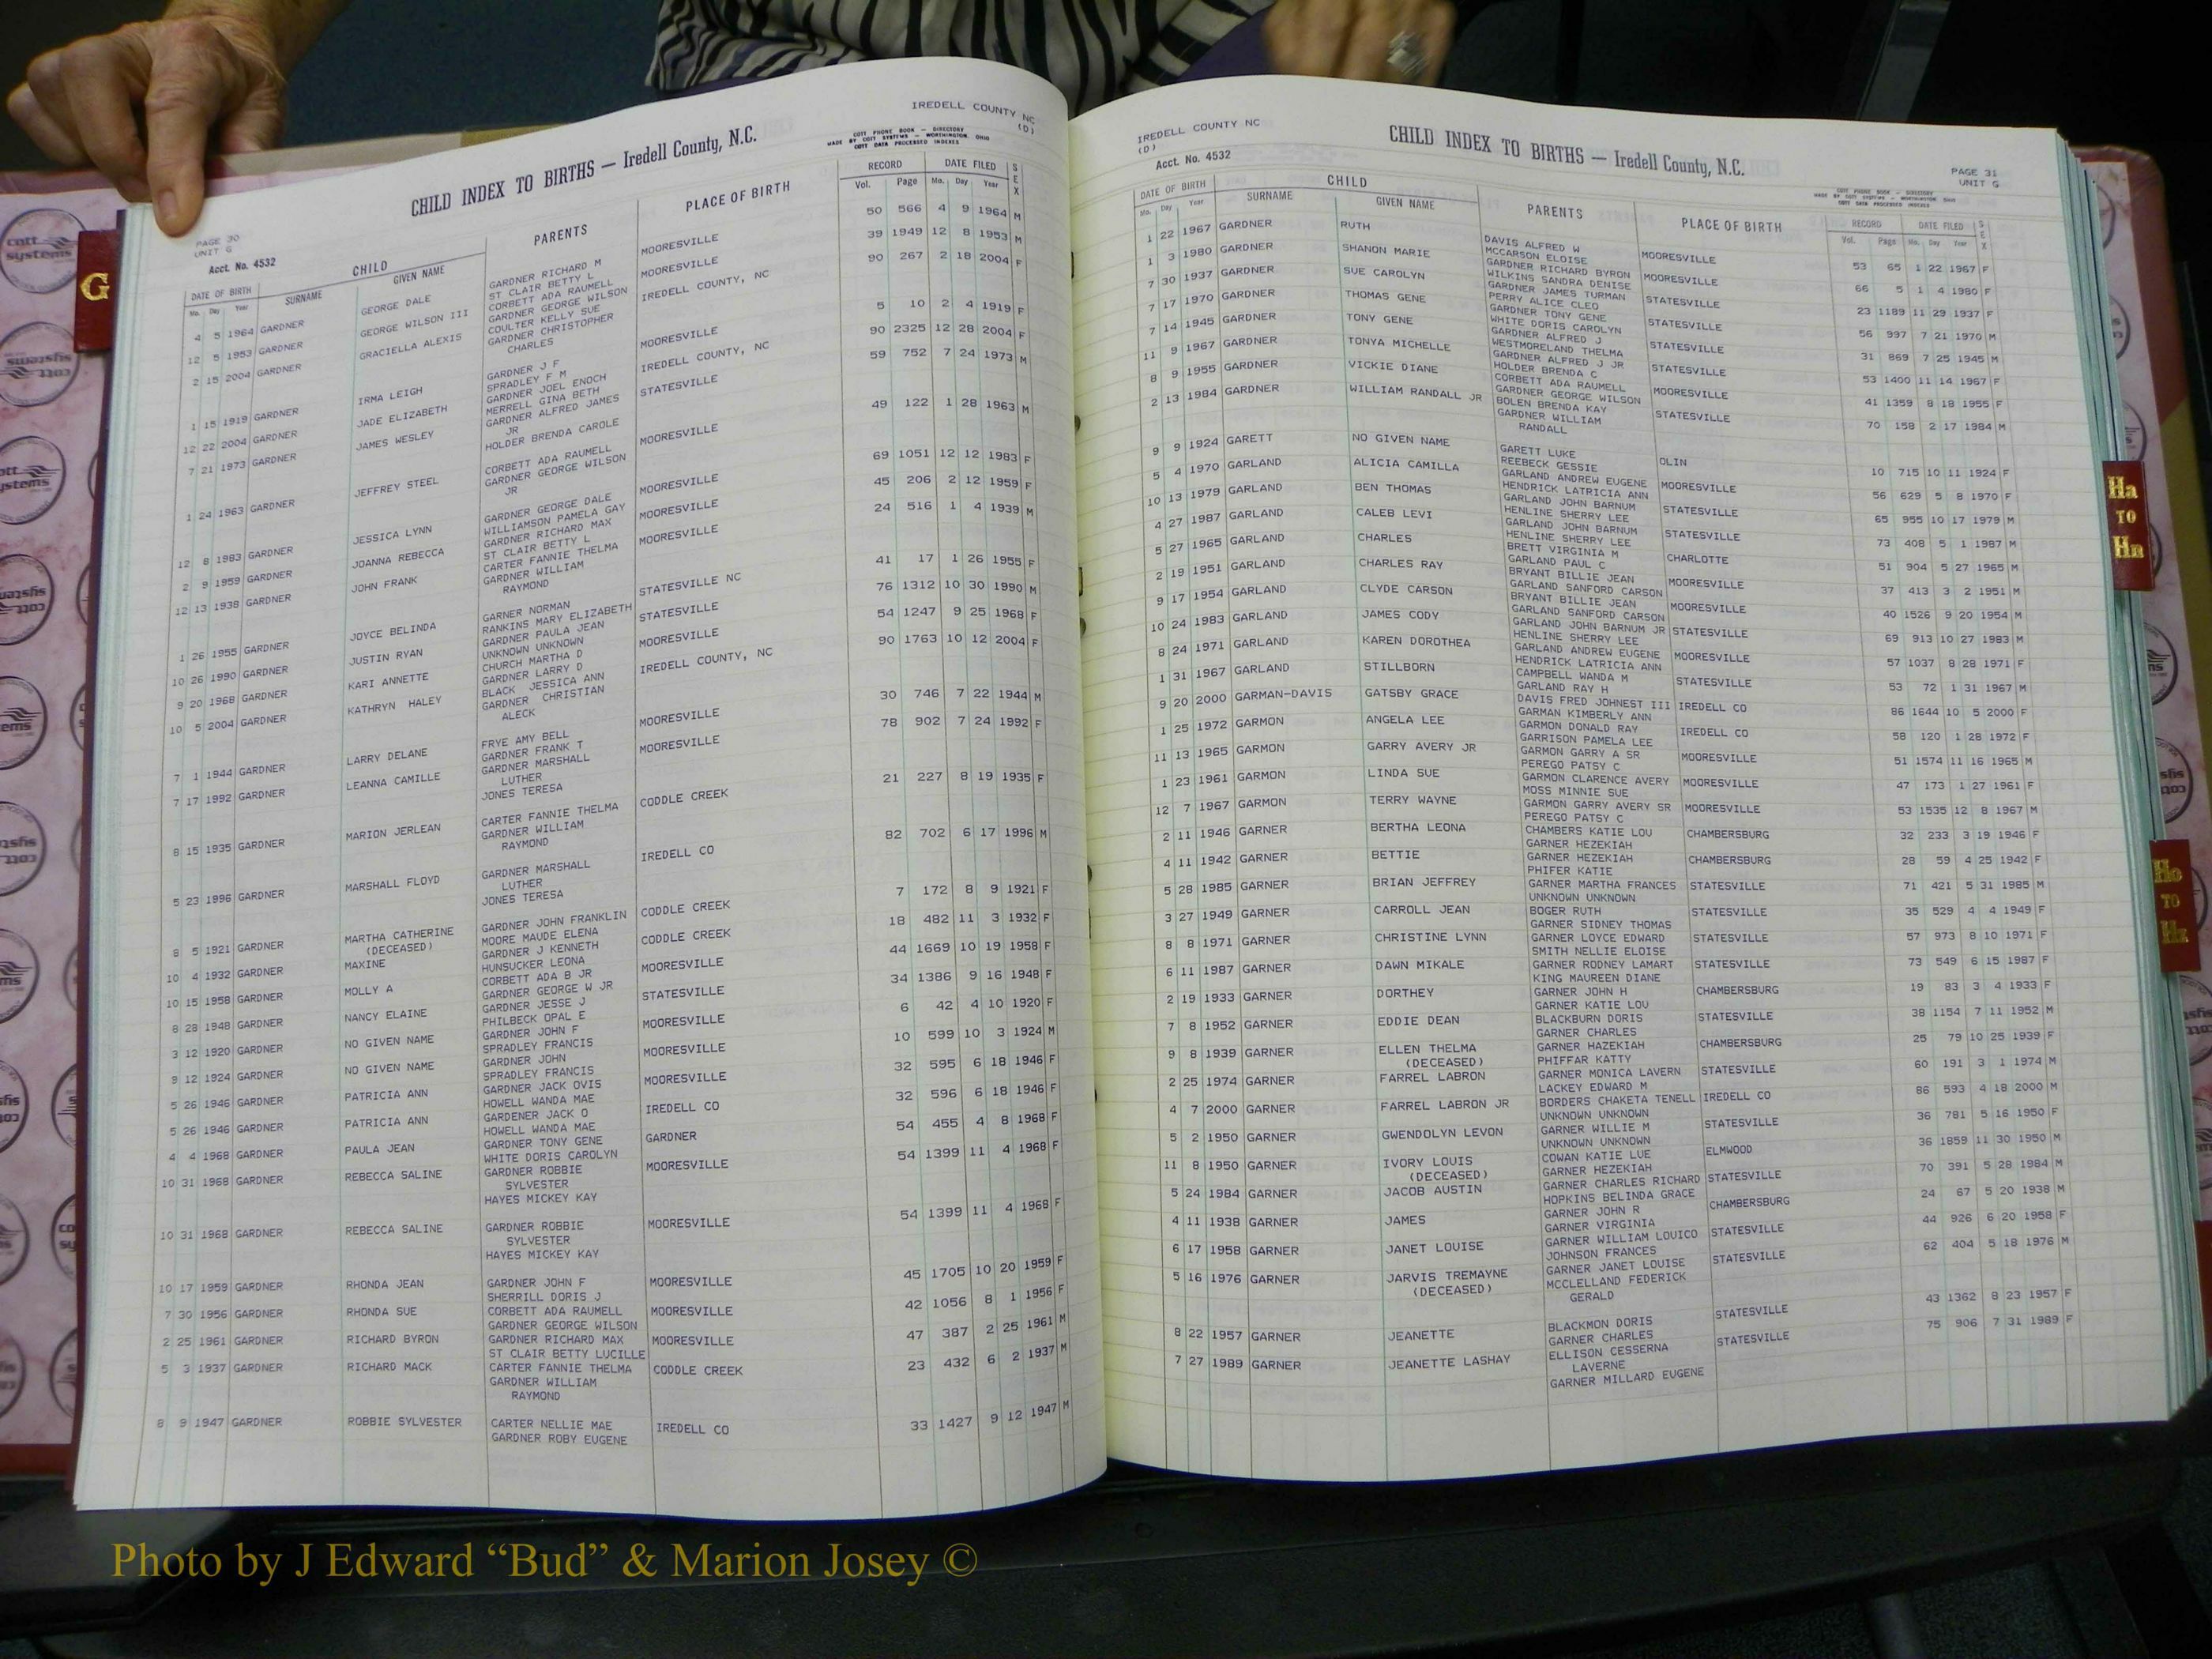 IREDELL COUNTY NC
(D)
CHILD INDEX TO BIRTHS — Iredell County, N.C.
COTT PHONE BOOK — DIRECTORY
MADE BY COTT SYSTEMS — WORTHINGTON, OHIO
COTT DATA PROCESSED INDEXES
PAGE 30
UNIT G
Acct. No. 4532
DATE OF BIRTH CHILD PARENTS PLACE OF BIRTH RECORD DATE FILED SEX
Mo. Day Year SURNAME GIVEN NAME Vol. Page Mo. Day Year
4 5 1964 GARDNER GEORGE DALE GARDNER RICHARD M MOORESVILLE 50 566 4 9 1964 M
ST CLAIR BETTY L
12 5 1953 GARDNER GEORGE WILSON III CORBETT ADA RAUMELL MOORESVILLE 39 1949 12 8 1953 M
GARDNER GEORGE WILSON
2 15 2004 GARDNER GRACIELLA ALEXIS COULTER KELLY SUE IREDELL COUNTY, NC 90 267 2 18 2004 F
GARDNER CHRISTOPHER
CHARLES
1 15 1919 GARDNER IRMA LEIGH GARDNER J F MOORESVILLE 5 10 2 4 1919 F
SPRADLEY F M
12 22 2004 GARDNER JADE ELIZABETH GARDNER JOEL ENOCH IREDELL COUNTY, NC 90 2325 12 28 2004 F
MERRELL GINA BETH
7 21 1973 GARDNER JAMES WESLEY GARDNER ALFRED JAMES STATESVILLE 59 752 7 24 1973 M
JR
HOLDER BRENDA CAROLE
1 24 1963 GARDNER JEFFREY STEEL CORBETT ADA RAUMELL MOORESVILLE 49 122 1 28 1963 M
GARDNER GEORGE WILSON
JR
12 8 1983 GARDNER JESSICA LYNN GARDNER GEORGE DALE MOORESVILLE 69 1051 12 12 1983 F
WILLIAMSON PAMELA GAY
2 9 1959 GARDNER JOANNA REBECCA GARDNER RICHARD MAX MOORESVILLE 45 206 2 12 1959 F
ST CLAIR BETTY L
12 13 1938 GARDNER JOHN FRANK CARTER FANNIE THELMA MOORESVILLE 24 516 1 4 1939 M
GARDNER WILLIAM
RAYMOND
1 26 1955 GARDNER JOYCE BELINDA GARNER NORMAN STATESVILLE NC 41 17 1 26 1955 F
RANKINS MARY ELIZABETH
10 26 1990 GARDNER JUSTIN RYAN GARDNER PAULA JEAN STATESVILLE 76 1312 10 30 1990 M
UNKNOWN UNKNOWN
9 20 1968 GARDNER KARI ANNETTE CHURCH MARTHA D MOORESVILLE 54 1247 9 25 1968 F
GARDNER LARRY D
10 5 2004 GARDNER KATHRYN HALEY BLACK JESSICA ANN IREDELL COUNTY, NC 90 1763 10 12 2004 F
GARDNER CHRISTIAN
ALECK
7 1 1944 GARDNER LARRY DELANE FRYE AMY BELL MOORESVILLE 30 746 7 22 1944 M
GARDNER FRANK T
7 17 1992 GARDNER LEANNA CAMILLE GARDNER MARSHALL MOORESVILLE 78 902 7 24 1992 F
LUTHER
JONES TERESA
8 15 1935 GARDNER MARION JERLEAN CARTER FANNIE THELMA CODDLE CREEK 21 227 8 19 1935 F
GARDNER WILLIAM
RAYMOND
5 23 1996 GARDNER MARSHALL FLOYD GARDNER MARSHALL IREDELL CO 82 702 6 17 1996 M
LUTHER
JONES TERESA
8 5 1921 GARDNER MARTHA CATHERINE GARDNER JOHN FRANKLIN CODDLE CREEK 7 172 8 9 1921 F
(DECEASED) MOORE MAUDE ELENA
10 4 1932 GARDNER MAXINE GARDNER J KENNETH CODDLE CREEK 18 482 11 3 1932 F
HUNSUCKER LEONA
10 15 1958 GARDNER MOLLY A CORBETT ADA B JR MOORESVILLE 44 1669 10 19 1958 F
GARDNER GEORGE W JR
8 28 1948 GARDNER NANCY ELAINE GARDNER JESSE J STATESVILLE 34 1386 9 16 1948 F
PHILBECK OPAL E
3 12 1920 GARDNER NO GIVEN NAME GARDNER JOHN F MOORESVILLE 6 42 4 10 1920 F
SPRADLEY FRANCIS
9 12 1924 GARDNER NO GIVEN NAME GARDNER JOHN MOORESVILLE 10 599 10 3 1924 M
SPRADLEY FRANCIS
5 26 1946 GARDNER PATRICIA ANN GARDNER JACK OVIS MOORESVILLE 32 595 6 18 1946 F
HOWELL WANDA MAE
5 26 1946 GARDNER PATRICIA ANN GARDENER JACK O IREDELL CO 32 596 6 18 1946 F
HOWELL WANDA MAE
4 4 1968 GARDNER PAULA JEAN GARDNER TONY GENE GARDNER 54 455 4 8 1968 F
WHITE DORIS CAROLYN
10 31 1968 GARDNER REBECCA SALINE GARDNER ROBBIE MOORESVILLE 54 1399 11 4 1968 F
SYLVESTER
HAYES MICKEY KAY
10 31 1968 GARDNER REBECCA SALINE GARDNER ROBBIE MOORESVILLE 54 1399 11 4 1968 F
SYLVESTER
HAYES MICKEY KAY
10 17 1959 GARDNER RHONDA JEAN GARDNER JOHN F MOORESVILLE 45 1705 10 20 1959 F
SHERRILL DORIS J
7 30 1956 GARDNER RHONDA SUE CORBETT ADA RAUMELL MOORESVILLE 42 1056 8 1 1956 F
GARDNER GEORGE WILSON
2 25 1961 GARDNER RICHARD BYRON GARDNER RICHARD MAX MOORESVILLE 47 387 2 25 1961 M
ST CLAIR BETTY LUCILLE
5 3 1937 GARDNER RICHARD MACK CARTER FANNIE THELMA CODDLE CREEK 23 432 6 2 1937 M
GARDNER WILLIAM
RAYMOND
8 9 1947 GARDNER ROBBIE SYLVESTER CARTER NELLIE MAE IREDELL CO 33 1427 9 12 1947 M
GARDNER ROBY EUGENE
IREDELL COUNTY NC
(D)
Acct. No. 4532
CHILD INDEX TO BIRTHS — Iredell County, N.C.
PAGE 31
UNIT G
COTT PHONE BOOK — DIRECTORY
MADE BY COTT SYSTEMS — WORTHINGTON, OHIO
COTT DATA PROCESSED INDEXES
DATE OF BIRTH CHILD PARENTS PLACE OF BIRTH RECORD DATE FILED SEX
Mo. Day Year SURNAME GIVEN NAME Vol. Page Mo. Day Year
1 22 1967 GARDNER RUTH DAVIS ALFRED W MOORESVILLE 53 65 1 22 1967 F
MCCARSON ELOISE
1 3 1980 GARDNER SHANON MARIE GARDNER RICHARD BYRON MOORESVILLE 66 5 1 4 1980 F
WILKINS SANDRA DENISE
7 30 1937 GARDNER SUE CAROLYN GARDNER JAMES TURMAN STATESVILLE 23 1189 11 29 1937 F
PERRY ALICE CLEO
7 17 1970 GARDNER THOMAS GENE GARDNER TONY GENE STATESVILLE 56 997 7 21 1970 M
WHITE DORIS CAROLYN
7 14 1945 GARDNER TONY GENE GARDNER ALFRED J STATESVILLE 31 869 7 25 1945 M
WESTMORELAND THELMA
11 9 1967 GARDNER TONYA MICHELLE GARDNER ALFRED J JR STATESVILLE 53 1400 11 14 1967 F
HOLDER BRENDA C
8 9 1955 GARDNER VICKIE DIANE CORBETT ADA RAUMELL MOORESVILLE 41 1359 8 18 1955 F
GARDNER GEORGE WILSON
2 13 1984 GARDNER WILLIAM RANDALL JR BOLEN BRENDA KAY STATESVILLE 70 158 2 17 1984 M
GARDNER WILLIAM
RANDALL
9 9 1924 GARETT NO GIVEN NAME GARETT LUKE OLIN 10 715 10 11 1924 F
REEBECK GESSIE
5 4 1970 GARLAND ALICIA CAMILLA GARLAND ANDREW EUGENE MOORESVILLE 56 629 5 8 1970 F
HENDRICK LATRICIA ANN
10 13 1979 GARLAND BEN THOMAS GARLAND JOHN BARNUM STATESVILLE 65 955 10 17 1979 M
HENLINE SHERRY LEE
4 27 1987 GARLAND CALEB LEVI GARLAND JOHN BARNUM STATESVILLE 73 408 5 1 1987 M
HENLINE SHERRY LEE
5 27 1965 GARLAND CHARLES BRETT VIRGINIA M CHARLOTTE 51 904 5 27 1965 M
GARLAND PAUL C
2 19 1951 GARLAND CHARLES RAY BRYANT BILLIE JEAN MOORESVILLE 37 413 3 2 1951 M
GARLAND SANFORD CARSON
9 17 1954 GARLAND CLYDE CARSON BRYANT BILLIE JEAN MOORESVILLE 40 1526 9 20 1954 M
GARLAND SANFORD CARSON
10 24 1983 GARLAND JAMES CODY GARLAND JOHN BARNUM JR STATESVILLE 69 913 10 27 1983 M
HENLINE SHERRY LEE
8 24 1971 GARLAND KAREN DOROTHEA GARLAND ANDREW EUGENE MOORESVILLE 57 1037 8 28 1971 F
HENDRICK LATRICIA ANN
1 31 1967 GARLAND STILLBORN CAMPBELL WANDA M STATESVILLE 53 72 1 31 1967 M
GARLAND RAY H
9 20 2000 GARMAN-DAVIS GATSBY GRACE DAVIS FRED JOHNEST III IREDELL CO 86 1644 10 5 2000 F
GARMAN KIMBERLY ANN
1 25 1972 GARMON ANGELA LEE GARMON DONALD RAY IREDELL CO 58 120 1 28 1972 F
GARRISON PAMELA LEE
11 13 1965 GARMON GARRY AVERY JR GARMON GARRY A SR MOORESVILLE 51 1574 11 16 1965 M
PEREGO PATSY C
1 23 1961 GARMON LINDA SUE GARMON CLARENCE AVERY MOORESVILLE 47 173 1 27 1961 F
MOSS MINNIE SUE
12 7 1967 GARMON TERRY WAYNE GARMON GARRY AVERY SR MOORESVILLE 53 1535 12 8 1967 M
PEREGO PATSY C
2 11 1946 GARNER BERTHA LEONA CHAMBERS KATIE LOU CHAMBERSBURG 32 233 3 19 1946 F
GARNER HEZEKIAH
4 11 1942 GARNER BETTIE GARNER HEZEKIAH CHAMBERSBURG 28 59 4 25 1942 F
PHIFER KATIE
5 28 1985 GARNER BRIAN JEFFREY GARNER MARTHA FRANCES STATESVILLE 71 421 5 31 1985 M
UNKNOWN UNKNOWN
3 27 1949 GARNER CARROLL JEAN BOGER RUTH STATESVILLE 35 529 4 4 1949 F
GARNER SIDNEY THOMAS
8 8 1971 GARNER CHRISTINE LYNN GARNER LOYCE EDWARD STATESVILLE 57 973 8 10 1971 F
SMITH NELLIE ELOISE
6 11 1987 GARNER DAWN MIKALE GARNER RODNEY LAMART STATESVILLE 73 549 6 15 1987 F
KING MAUREEN DIANE
2 19 1933 GARNER DORTHEY GARNER JOHN H CHAMBERSBURG 19 83 3 4 1933 F
GARNER KATIE LOU
7 8 1952 GARNER EDDIE DEAN BLACKBURN DORIS STATESVILLE 38 1154 7 11 1952 M
GARNER CHARLES
9 8 1939 GARNER ELLEN THELMA GARNER HAZEKIAH CHAMBERSBURG 25 79 10 25 1939 F
(DECEASED) PHIFFAR KATTY
2 25 1974 GARNER FARREL LABRON GARNER MONICA LAVERN STATESVILLE 60 191 3 1 1974 M
LACKEY EDWARD M
4 7 2000 GARNER FARREL LABRON JR BORDERS CHAKETA TENELL IREDELL CO 86 593 4 18 2000 M
UNKNOWN UNKNOWN
5 2 1950 GARNER GWENDOLYN LEVON GARNER WILLIE M STATESVILLE 36 781 5 16 1950 F
UNKNOWN UNKNOWN
11 8 1950 GARNER IVORY LOUIS COWAN KATIE LUE ELMWOOD 36 1859 11 30 1950 M
(DECEASED) GARNER HEZEKIAH
5 24 1984 GARNER JACOB AUSTIN GARNER CHARLES RICHARD STATESVILLE 70 391 5 28 1984 M
HOPKINS BELINDA GRACE
4 11 1938 GARNER JAMES GARNER JOHN R CHAMBERSBURG 24 67 5 20 1938 M
GARNER VIRGINIA
6 17 1958 GARNER JANET LOUISE GARNER WILLIAM LOUICO STATESVILLE 44 926 6 20 1958 F
JOHNSON FRANCES
5 16 1976 GARNER JARVIS TREMAYNE GARNER JANET LOUISE STATESVILLE 62 404 5 18 1976 M
(DECEASED) MCCLELLAND FEDERICK
GERALD
8 22 1957 GARNER JEANETTE BLACKMON DORIS STATESVILLE 43 1362 8 23 1957 F
GARNER CHARLES
7 27 1989 GARNER JEANETTE LASHAY ELLISON CESSERNA STATESVILLE 75 906 7 31 1989 F
LAVERNE
GARNER MILLARD EUGENE
G
Ha
TO
Hn
Ho
TO
Hz
cott
systems
Photo by J Edward “Bud” & Marion Josey ©